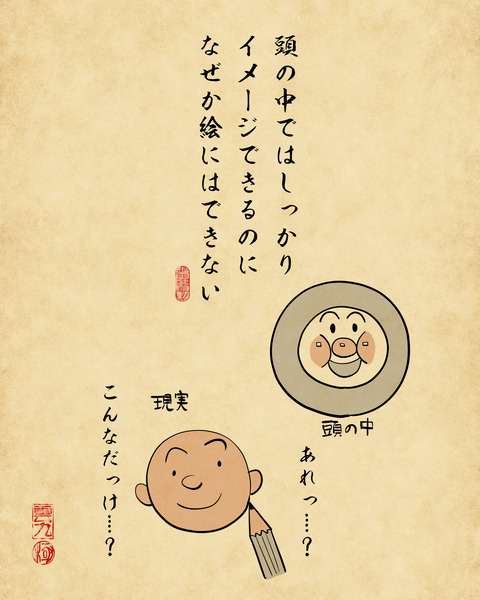 頭の中ではしっかり
イメージできるのに
なぜか絵にはできない
頭の中
あれっ……?
現実
こんなだっけ……?